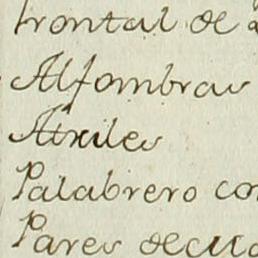 frontal de
Alfombras
Atriles
Palabrero con
Pares decua